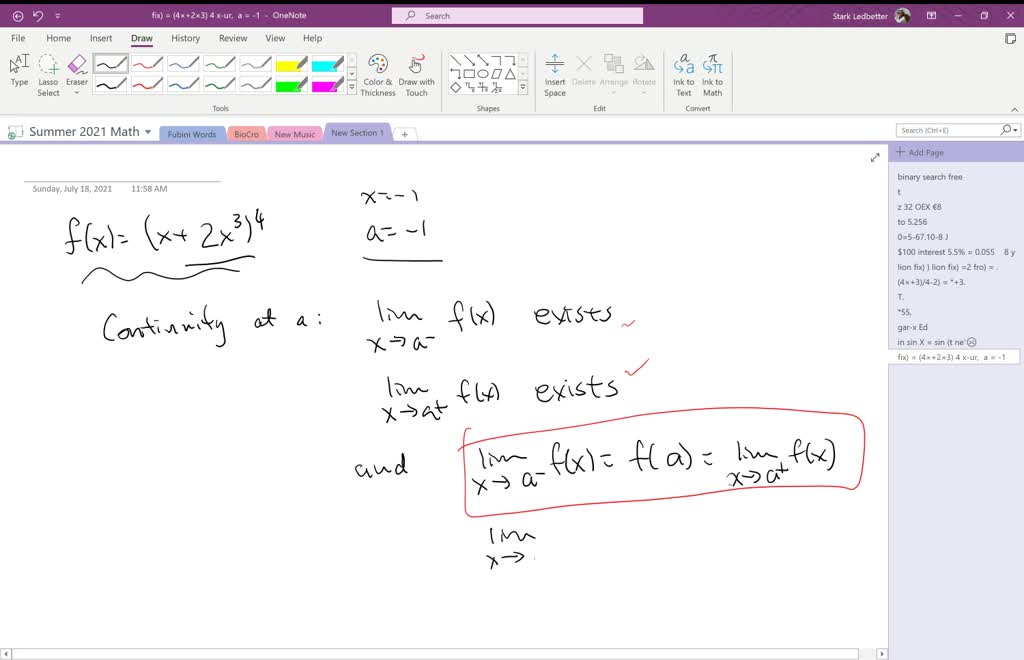 fix) = (4×+2×3) 4 x-ur, a = -1 - OneNote
Search
Stark Ledbetter
File Home Insert Draw History Review View Help
Type
Lasso Select
Eraser
Color & Thickness
Draw with Touch
Insert Space
Delete
Arrange
Rotate
Ink to Text
Ink to Math
Tools
Shapes
Edit
Convert
Summer 2021 Math
Fubini Words
BioCro
New Music
New Section 1
Search (Ctrl+E)
Sunday, July 18, 2021 11:58 AM
f(x)= (x+ 2x³)⁴
x=-1
a=-1
Continuity at a: lim f(x) exists
x→a⁻
lim f(x) exists
x→a⁺
and lim f(x) = f(a) = lim f(x)
x→a⁻ x→a⁺
lim
x→
Add Page
binary search free
t
z 32 OEX €8
to 5.256
0=5-67.10-8 J
$100 interest 5.5% = 0.055 8 y
lion fix) ) lion fix) =2 fro) = .
(4×+3)/4-2) = *+3.
T.
*55,
gar-x Ed
in sin X = sin (t ne'☹
fix) = (4×+2×3) 4 x-ur, a = -1